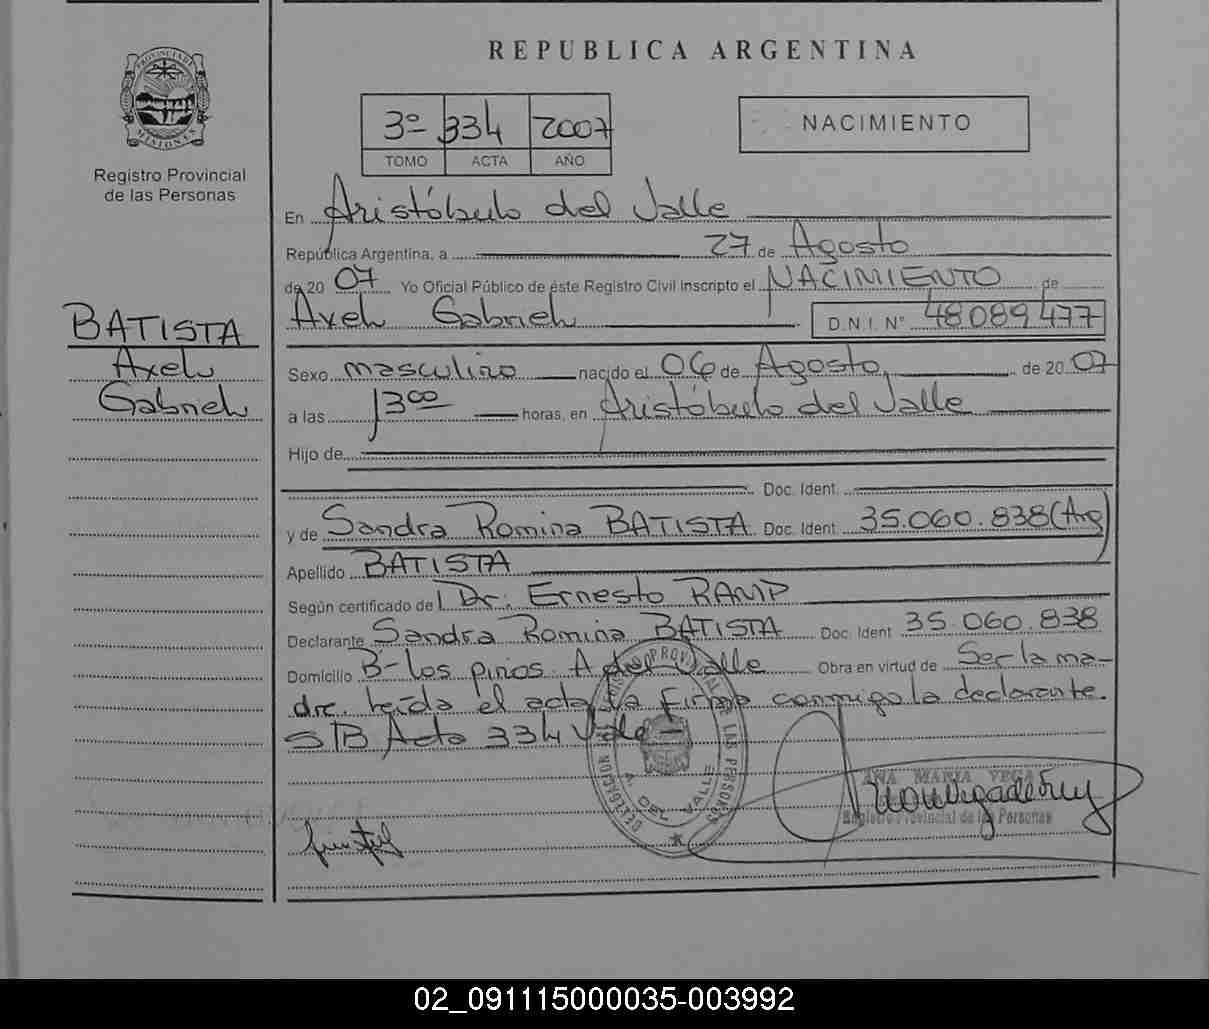 REPUBLICA ARGENTINA
PROVINCIA DE MISIONES
Registro Provincial
de las Personas
3º 334 2007
TOMO ACTA AÑO
NACIMIENTO
En Aristóbulo del Valle
República Argentina, a 27 de Agosto
de 20 07 Yo Oficial Público de este Registro Civil inscripto el NACIMIENTO de
Axel Gabriel D.N.I. N° 48089477
BATISTA
Axel
Gabriel
Sexo masculino nacido el 06 de Agosto de 20 07
a las 13 00 horas, en Aristóbulo del Valle
Hijo de
Doc. Ident.
y de Sandra Romina BATISTA Doc. Ident. 35.060.838 (Arg)
Apellido BATISTA
Según certificado de Dr. Ernesto RAMP
Declarante Sandra Romina BATISTA Doc. Ident 35.060.838
Domicilio B- Los pinos. A del Valle Obra en virtud de Ser la ma-
dre. Leída el acta la firma conmigo la declarante.
S/B Acta 334 Vale -
A. DEL VALLE
ANA MARIA VEGA
Registro Provincial de las Personas
02_091115000035-003992